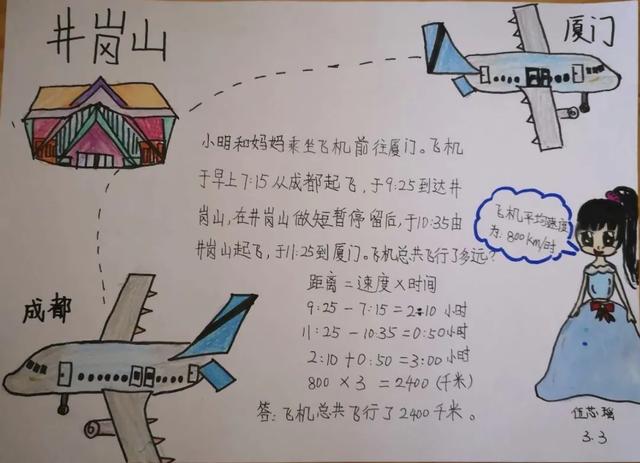 井岗山
厦门
小明和妈妈乘坐飞机前往厦门。飞机
于早上7:15从成都起飞,于9:25到达井
岗山,在井岗山做短暂停留后,于10:35由
井岗山起飞,于11:25到厦门。飞机总共飞行了多远?
飞机平均速度
为:800km/时
距离=速度×时间
9:25-7:15=2:10小时
11:25-10:35=0:50小时
2:10+0:50=3:00小时
800×3=2400(千米)
答:飞机总共飞行了2400千米。
成都
伍芯瑶
3.3